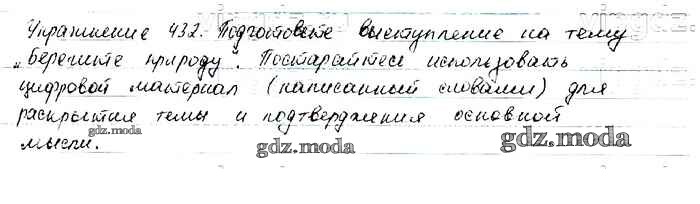 Упражнение 432. Подготовьте выступление на тему
„Берегите природу". Постарайтесь использовать
цифровой материал (написанный словами) для
раскрытия темы и подтверждения основной
мысли.
gdz.moda
gdz.moda
gdz.moda